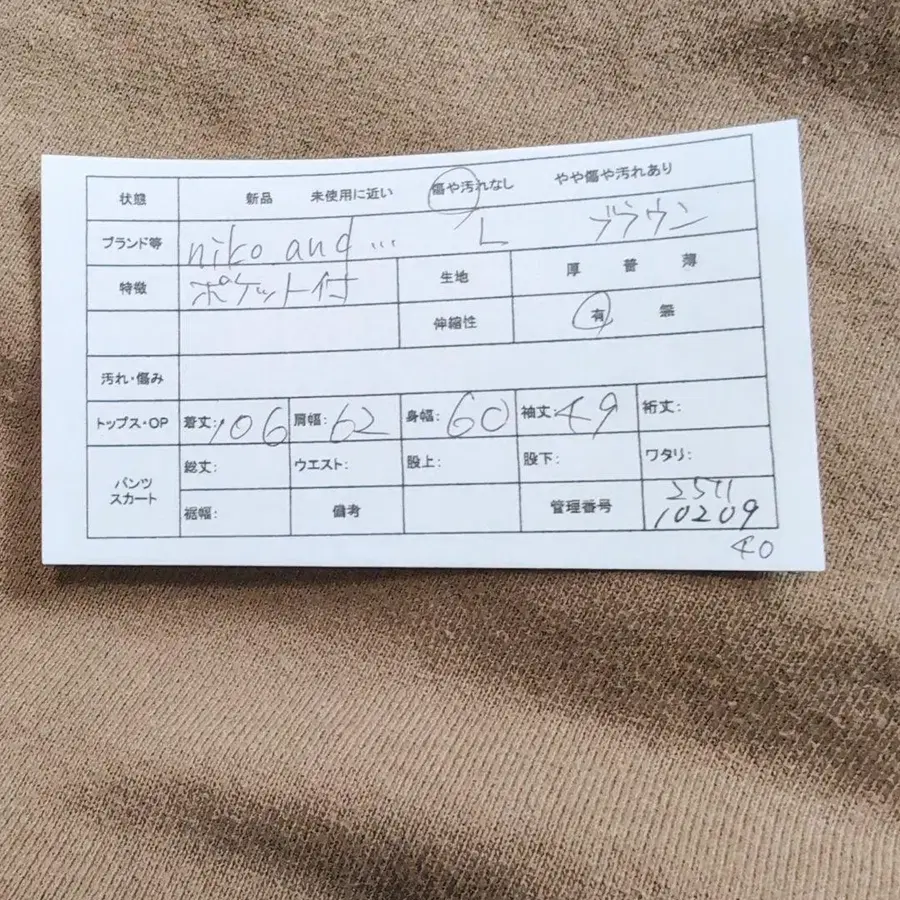 状態 新品 未使用に近い 傷や汚れなし やや傷や汚れあり
ブランド等 niko and ... L ブラウン
特徴 ポケット付 生地 厚 普 薄
伸縮性 有 無
汚れ・傷み
トップス・OP 着丈:106 肩幅:62 身幅:60 袖丈:49 裄丈:
パンツ スカート 総丈: ウエスト: 股上: 股下: ワタリ:
裾幅: 備考 管理番号 2511
10209
40